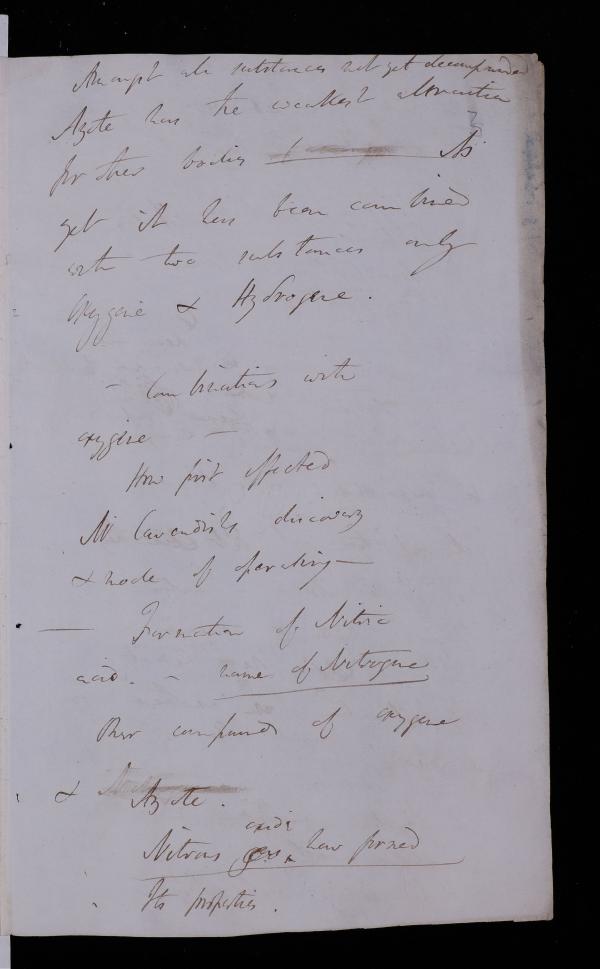 Amongst all substances not yet decompounded
Azote has the weakest attraction
for other bodies As
yet it has been combined
with two substances only
Oxygene & Hydrogene.
- Combinations with
oxygene -
How first effected
Mr Cavendish's discovery
& mode of operating -
- Formation of Nitric
acid. - name of Nitrogene
Other compounds of oxygene
& Azote.
oxide
Nitrous gas how formed
Its properties.